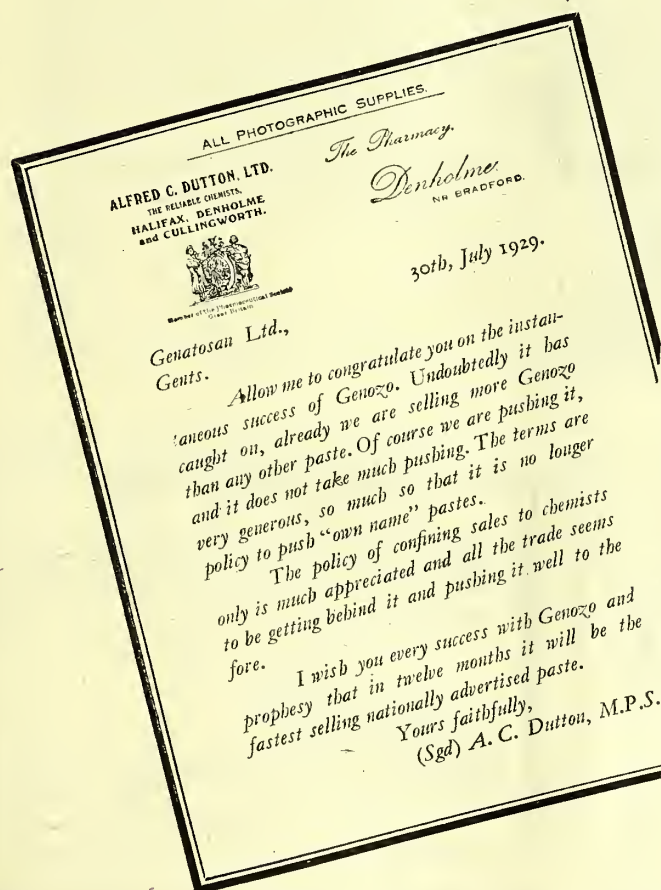 ALL PHOTOGRAPHIC SUPPLIES.
ALFRED C. DUTTON, LTD.
THE RELIABLE CHEMISTS,
HALIFAX, DENHOLME
and CULLINGWORTH.
Member of the Pharmaceutical Society
Great Britain
The Pharmacy.
Denholme.
NR BRADFORD.
30th, July 1929.
Genatosan Ltd.,
Gents.
Allow me to congratulate you on the instan-
taneous success of Genozo. Undoubtedly it has
caught on, already we are selling more Genozo
than any other paste. Of course we are pushing it,
and it does not take much pushing. The terms are
very generous, so much so that it is no longer
policy to push "own name" pastes.
The policy of confining sales to chemists
only is much appreciated and all the trade seems
to be getting behind it and pushing it well to the
fore.
I wish you every success with Genozo and
prophesy that in twelve months it will be the
fastest selling nationally advertised paste.
Yours faithfully,
(Sgd) A. C. Dutton, M.P.S.